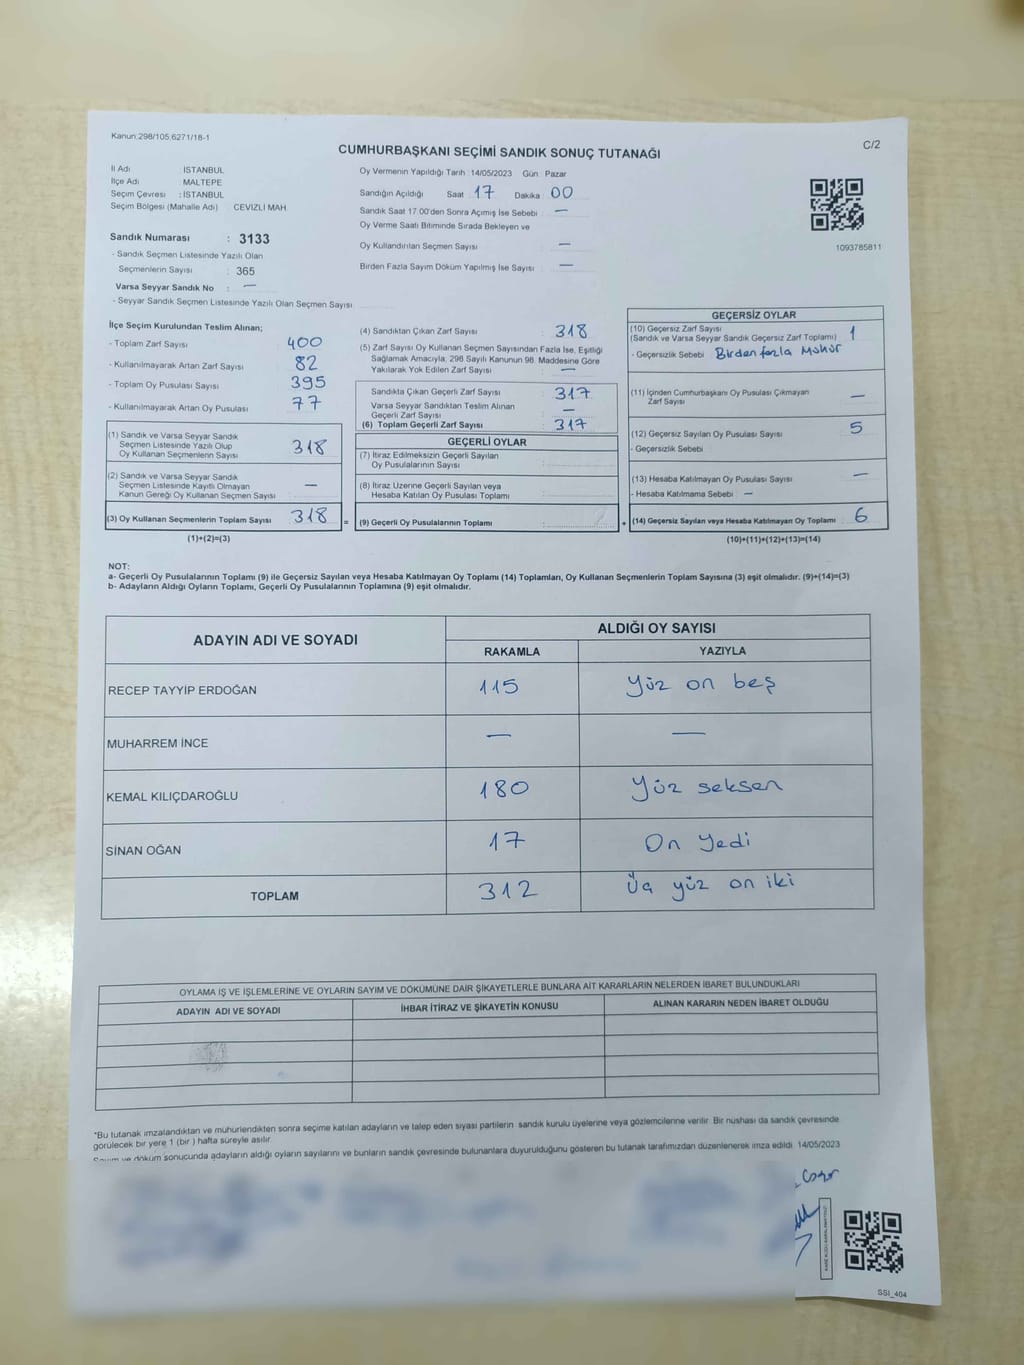 Kanun:298/105;6271/18-1
C/2
CUMHURBAŞKANI SEÇİMİ SANDIK SONUÇ TUTANAĞI
İl Adı : İSTANBUL
İlçe Adı : MALTEPE
Seçim Çevresi : İSTANBUL
Seçim Bölgesi (Mahalle Adı) CEVİZLİ MAH.
Sandık Numarası : 3133
- Sandık Seçmen Listesinde Yazılı Olan
Seçmenlerin Sayısı : 365
Varsa Seyyar Sandık No : —
- Seyyar Sandık Seçmen Listesinde Yazılı Olan Seçmen Sayısı
Oy Vermenin Yapıldığı Tarih :14/05/2023 Gün : Pazar
Sandığın Açıldığı Saat 17 Dakika 00
Sandık Saat 17.00'den Sonra Açımış İse Sebebi : —
Oy Verme Saati Bitiminde Sırada Bekleyen ve
Oy Kullandırılan Seçmen Sayısı : —
Birden Fazla Sayım Döküm Yapılmış İse Sayısı : —
1093785811
İlçe Seçim Kurulundan Teslim Alınan;
- Toplam Zarf Sayısı : 400
- Kullanılmayarak Artan Zarf Sayısı : 82
- Toplam Oy Pusulası Sayısı : 395
- Kullanılmayarak Artan Oy Pusulası : 77
(1) Sandık ve Varsa Seyyar Sandık
Seçmen Listesinde Yazılı Olup
Oy Kullanan Seçmenlerin Sayısı : 318
(2) Sandık ve Varsa Seyyar Sandık
Seçmen Listesinde Kayıtlı Olmayan
Kanun Gereği Oy Kullanan Seçmen Sayısı : —
(3) Oy Kullanan Seçmenlerin Toplam Sayısı : 318 =
(1)+(2)=(3)
(4) Sandıktan Çıkan Zarf Sayısı : 318
(5) Zarf Sayısı Oy Kullanan Seçmen Sayısından Fazla İse, Eşitliği
Sağlamak Amacıyla; 298 Sayılı Kanunun 98. Maddesine Göre
Yakılarak Yok Edilen Zarf Sayısı : —
Sandıkta Çıkan Geçerli Zarf Sayısı : 317
Varsa Seyyar Sandıktan Teslim Alınan
Geçerli Zarf Sayısı : —
(6) Toplam Geçerli Zarf Sayısı : 317
GEÇERLİ OYLAR
(7) İtiraz Edilmeksizin Geçerli Sayılan
Oy Pusulalarının Sayısı :
(8) İtiraz Üzerine Geçerli Sayılan veya
Hesaba Katılan Oy Pusulası Toplamı :
(9) Geçerli Oy Pusulalarının Toplamı : +
GEÇERSİZ OYLAR
(10) Geçersiz Zarf Sayısı
(Sandık ve Varsa Seyyar Sandık Geçersiz Zarf Toplamı) : 1
- Geçersizlik Sebebi : Birden fazla Mühür
(11) İçinden Cumhurbaşkanı Oy Pusulası Çıkmayan
Zarf Sayısı : —
(12) Geçersiz Sayılan Oy Pusulası Sayısı : 5
- Geçersizlik Sebebi :
(13) Hesaba Katılmayan Oy Pusulası Sayısı : —
- Hesaba Katılmama Sebebi : —
(14) Geçersiz Sayılan veya Hesaba Katılmayan Oy Toplamı : 6
(10)+(11)+(12)+(13)=(14)
NOT:
a- Geçerli Oy Pusulalarının Toplamı (9) ile Geçersiz Sayılan veya Hesaba Katılmayan Oy Toplamı (14) Toplamları, Oy Kullanan Seçmenlerin Toplam Sayısına (3) eşit olmalıdır. (9)+(14)=(3)
b- Adayların Aldığı Oyların Toplamı, Geçerli Oy Pusulalarının Toplamına (9) eşit olmalıdır.
ADAYIN ADI VE SOYADI
ALDIĞI OY SAYISI
RAKAMLA YAZIYLA
RECEP TAYYİP ERDOĞAN 115 Yüz on beş
MUHARREM İNCE — —
KEMAL KILIÇDAROĞLU 180 Yüz seksen
SİNAN OĞAN 17 On Yedi
TOPLAM 312 Üç yüz on iki
OYLAMA İŞ VE İŞLEMLERİNE VE OYLARIN SAYIM VE DÖKÜMÜNE DAİR ŞİKAYETLERLE BUNLARA AİT KARARLARIN NELERDEN İBARET BULUNDUKLARI
ADAYIN ADI VE SOYADI İHBAR İTİRAZ VE ŞİKAYETİN KONUSU ALINAN KARARIN NEDEN İBARET OLDUĞU
*Bu tutanak imzalandıktan ve mühürlendikten sonra seçime katılan adayların ve talep eden siyasi partilerin sandık kurulu üyelerine veya gözlemcilerine verilir. Bir nüshası da sandık çevresinde
görülecek bir yere 1 (bir ) hafta süreyle asılır.
Sayım ve döküm sonucunda adayların aldığı oyların sayılarını ve bunların sandık çevresinde bulunanlara duyurulduğunu gösteren bu tutanak tarafımızdan düzenlenerek imza edildi. 14/05/2023
SSI_404